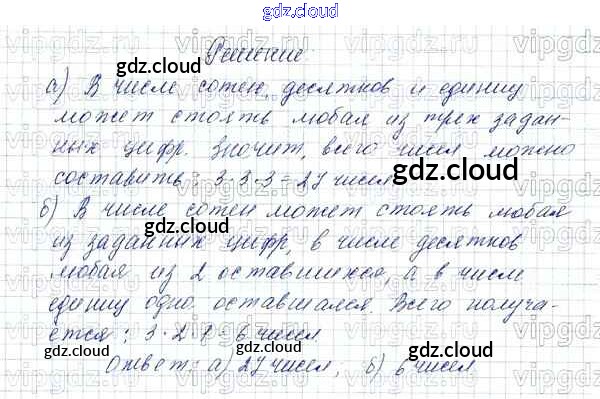 gdz.cloud
Решение
а) В числе сотен, десятков и единиц
может стоять любая из трех задан-
ных цифр. Значит, всего чисел можно
составить: 3·3·3=27 чисел
б) В числе сотен может стоять любая
из заданных цифр, в числе десятков
любая из 2 оставшихся, а в числе
единиц одна оставшаяся. Всего получа-
ется: 3·2·1=6 чисел
Ответ: а) 27 чисел, б) 6 чисел